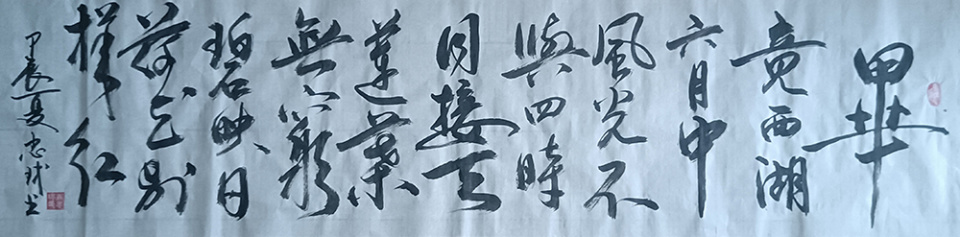 畢
竟西湖
六月中
風光不
與四時
同接天
蓮葉
無窮
碧映日
荷花别
樣红
甲辰夏忠球书